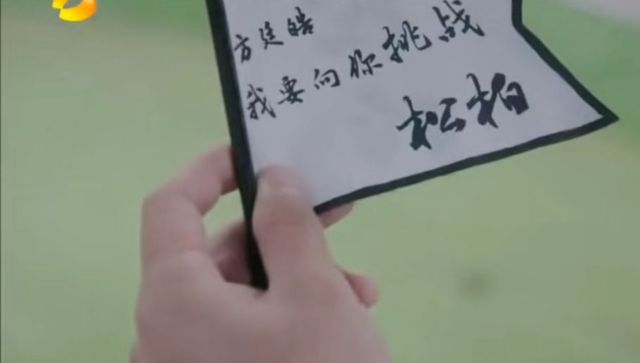 方廷皓
我要向你挑战
松柏